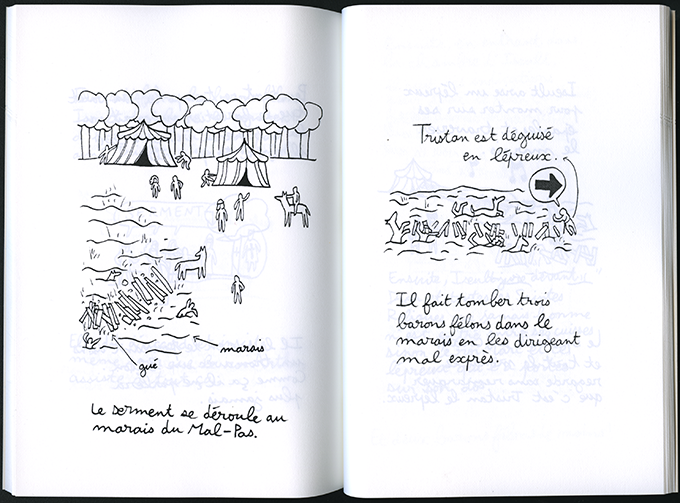 gué
marais
Le serment se déroule au
marais du Mal-Pas.
Tristan est déguisé
en lépreux.
Il fait tomber trois
barons félons dans le
marais en les dirigeant
mal exprès.